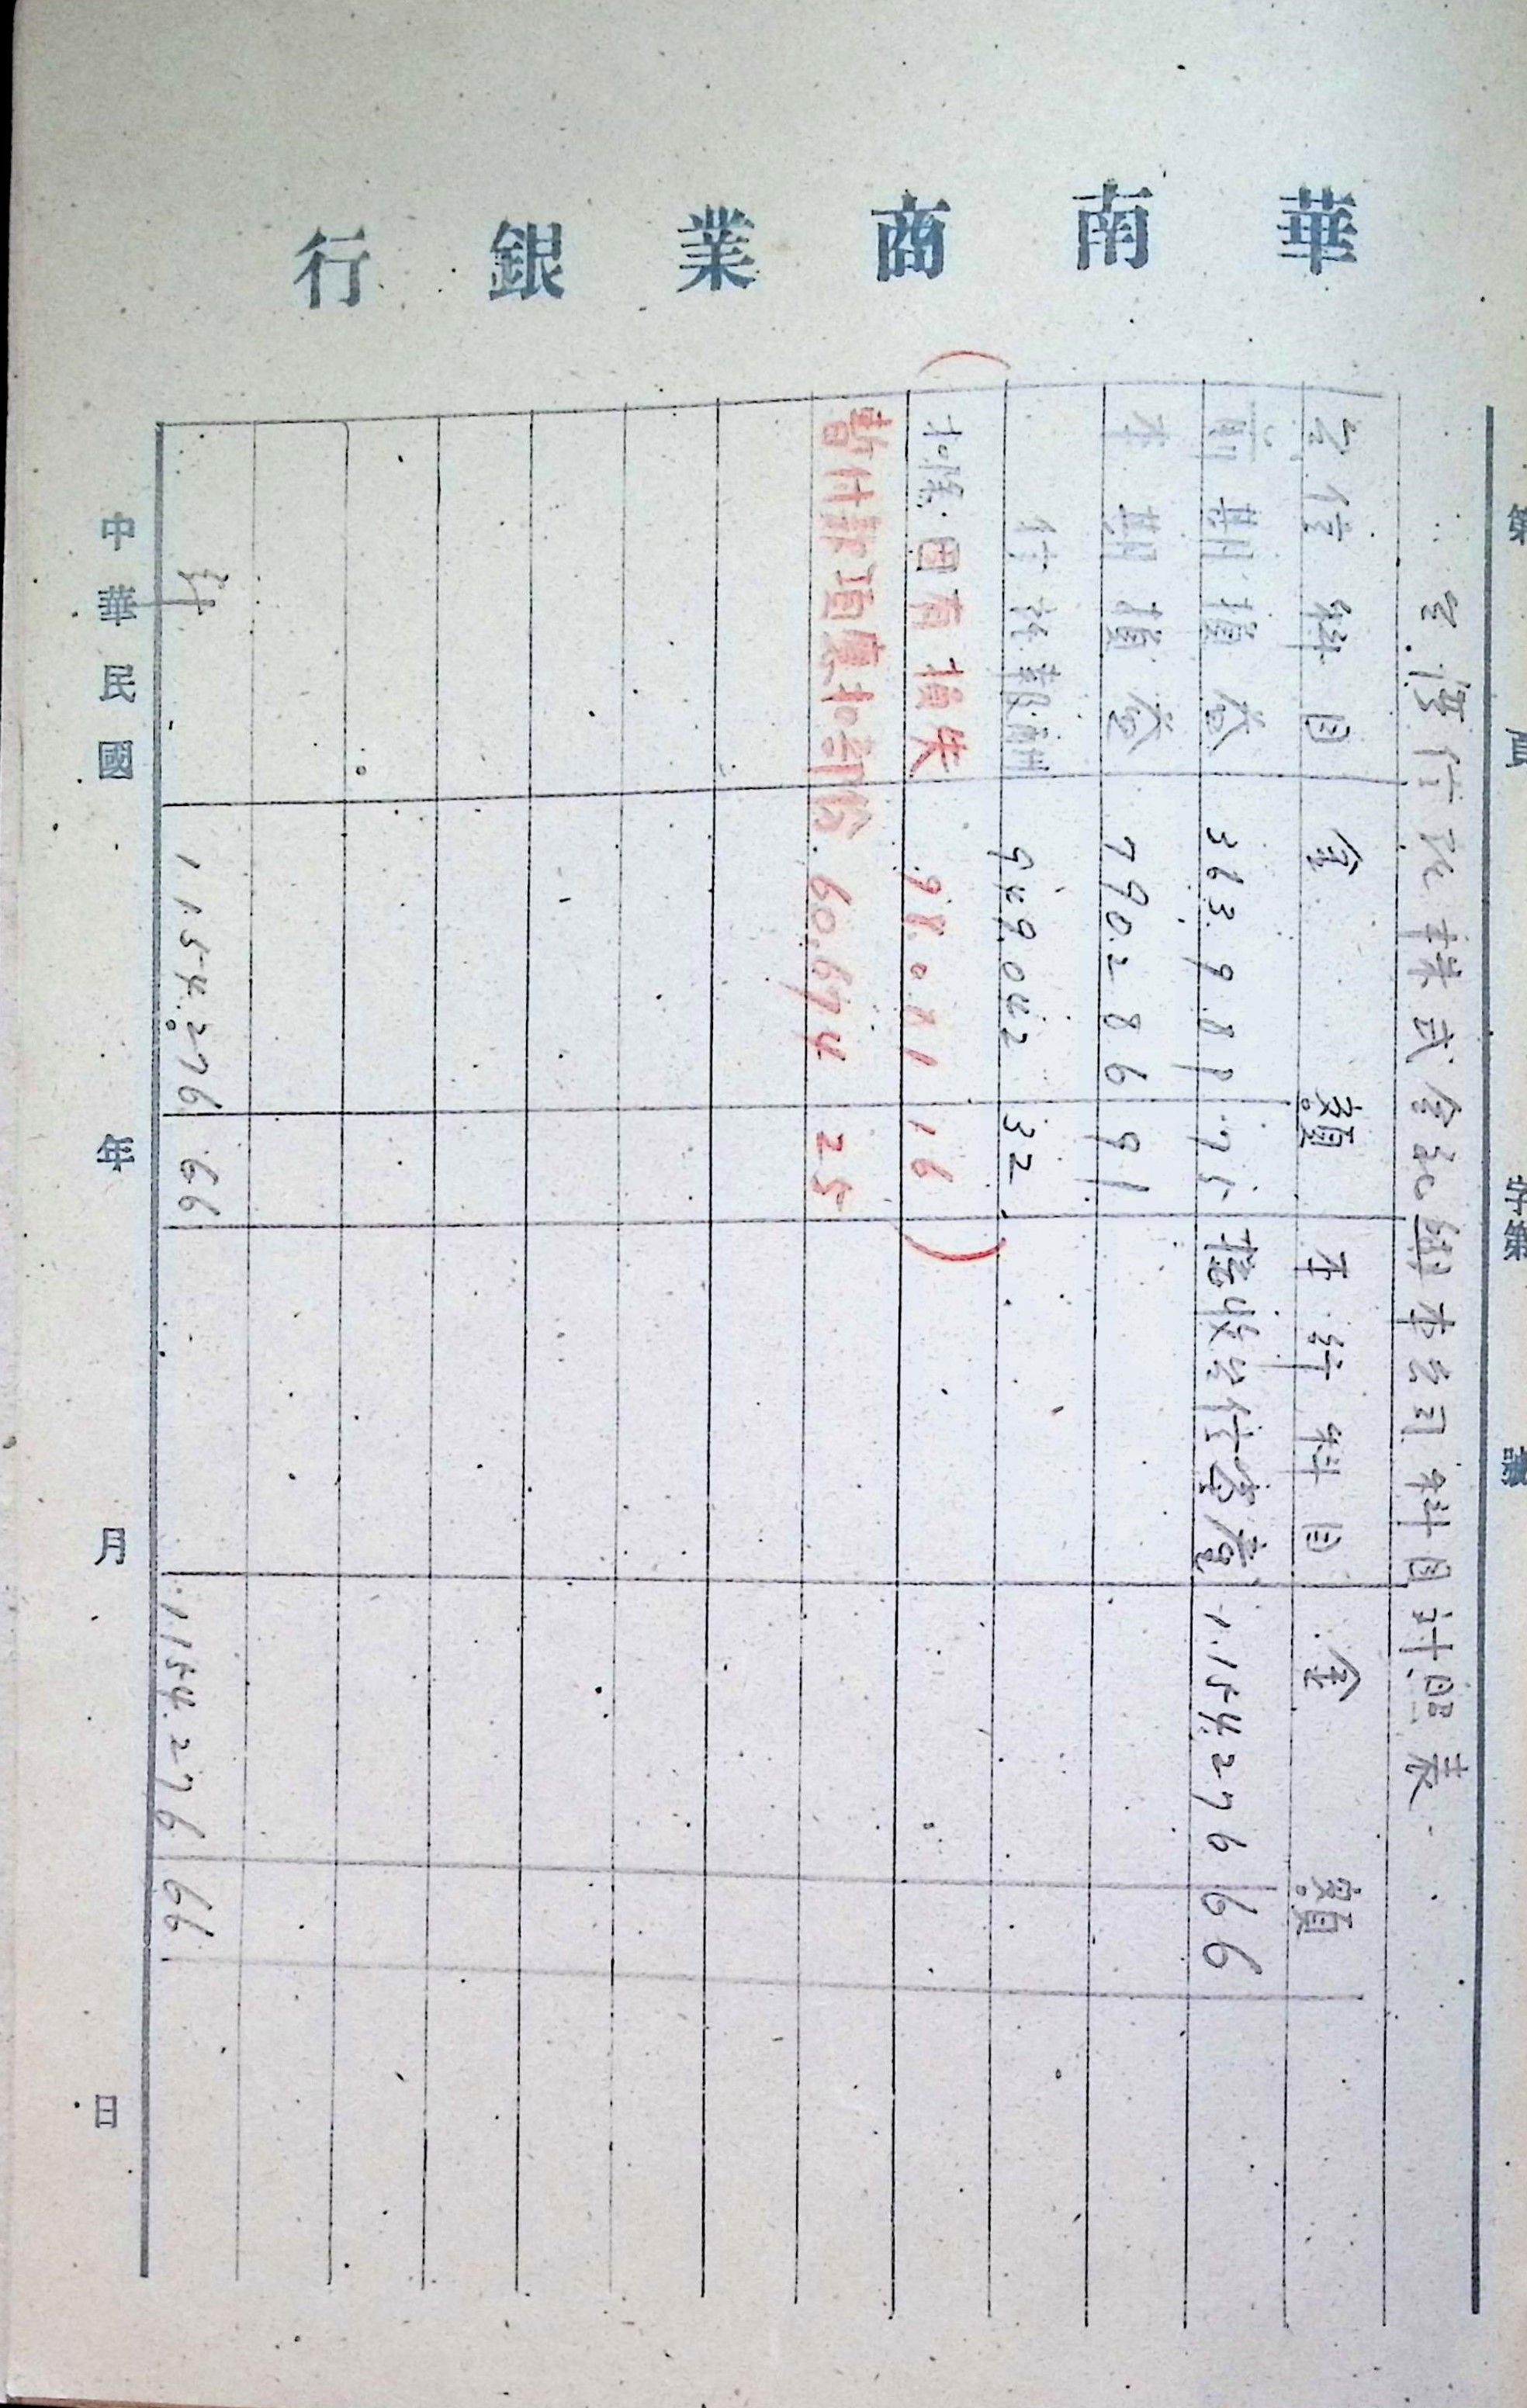 華南商業銀行
第 頁 字第 號
台湾信託株式会社與本公司科目計照表
台信科目 金額 本行科目 金額
前期損益 363.989 75 接收台信資產 1.154.276 66
本期損益 790.286 91
信託報酬 949.042 32
(扣除固有損失 98.081 16)
暫付款項應扣部份 60.674 25
計 1.154.276 66 1.154.276 66
中華民國 年 月 日